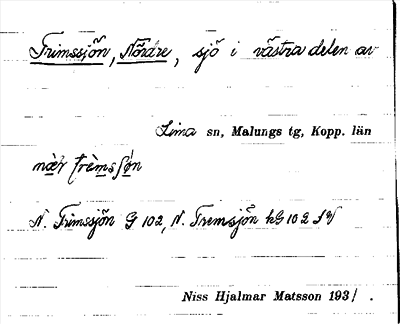 Trimssjön, Nördre, sjö i västra delen av
Lima sn, Malungs tg, Kopp. län
nær frèmsʃǿn
N. Trimssjön G 102, N. Tremsjön hG 102
Niss Hjalmar Matsson 193/ .